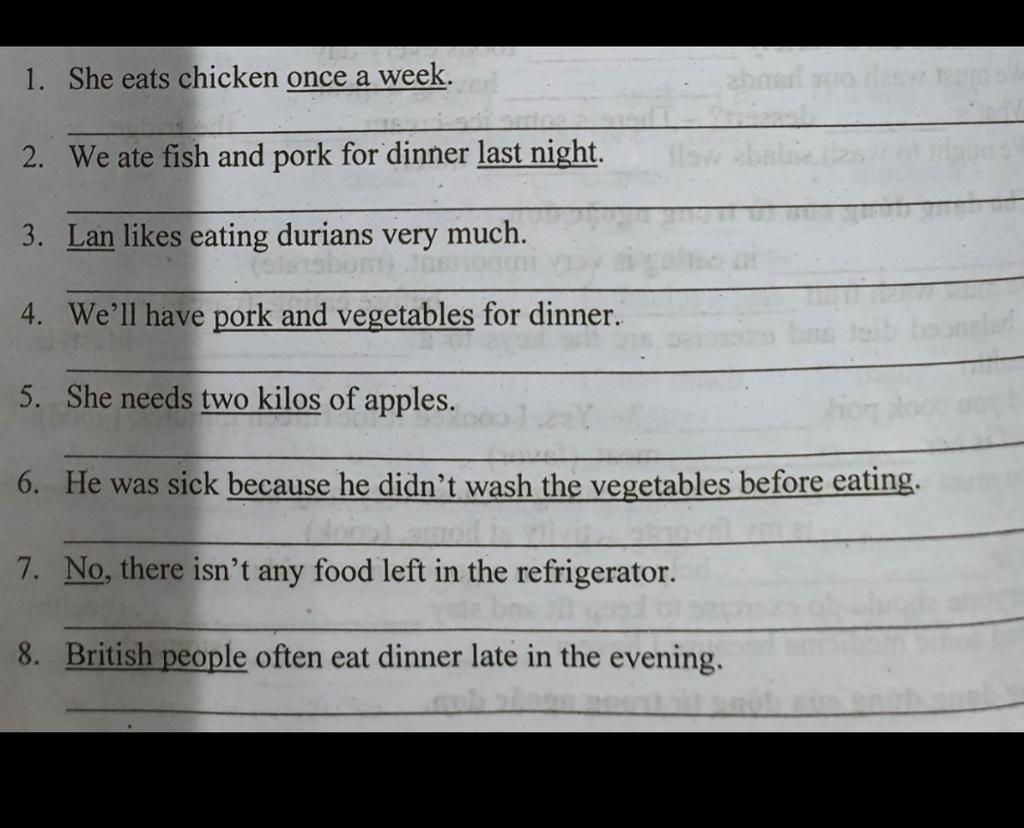 1. She eats chicken once a week.
2. We ate fish and pork for dinner last night.
3. Lan likes eating durians very much.
4. We'll have pork and vegetables for dinner.
5. She needs two kilos of apples.
6. He was sick because he didn't wash the vegetables before eating.
7. No, there isn't any food left in the refrigerator.
8. British people often eat dinner late in the evening.